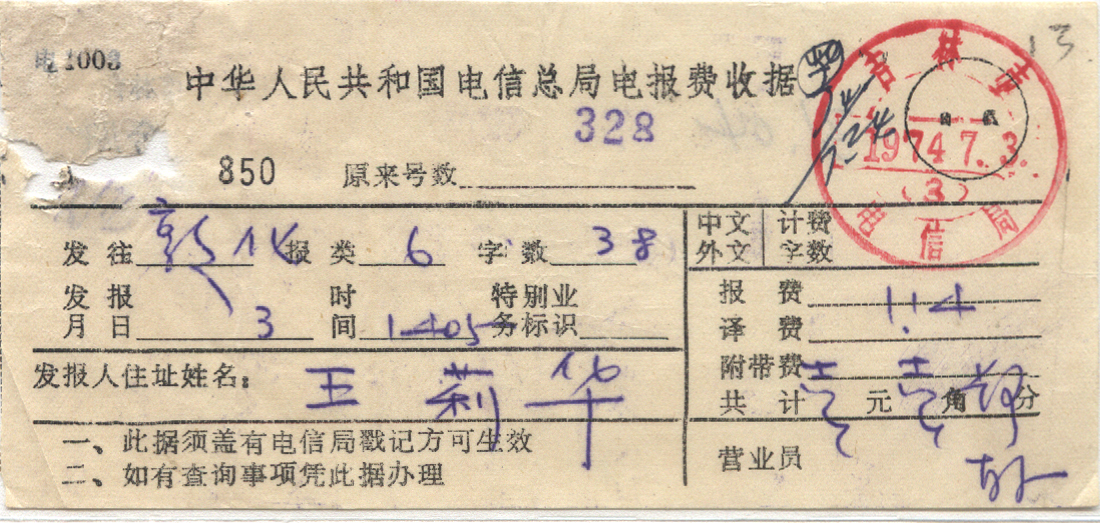 电1003
中华人民共和国电信总局电报费收据
328
850 原来号数
吉林
1974 7. 3
(3)
电信局
13
发往 敦化 报类 6 字数 38
中文 计费
外文 字数
发报 时 特别业
月日 3 间 1405 务标识
报费 1.14
译费
附带费
共计 壹元壹角肆分
发报人住址姓名: 王莉华
一、此据须盖有电信局戳记方可生效
二、如有查询事项凭此据办理
营业员